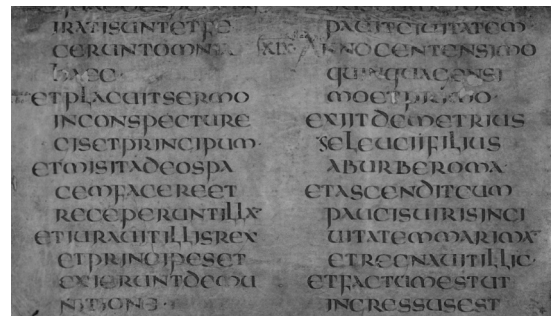 IRATISUNTETFE
CERUNTOMNIA
HAEC·
ETPLACUITSERMO
INCONSPECTURE
GISETPRINCIPUM·
ETMISITADEOSPA
CEMFACEREET
RECEPERUNTILLA·
ETIURAUITILLISREX
ETPRINCIPESET
EXIERUNTDEMU
NITIONE·
PAUITCIUITATEM
XIX· ANNOCENTENSIMO
QUINQUAGENSI
MOETPRIMO·
EXIITDEMETRIUS
SELEUCIIFILIUS
ABURBEROMA·
ETASCENDITCUM
PAUCISUIRISINCI
UITATEMMARIMA·
ETREGNAUITILLIC·
ETFACTUMESTUT
INGRESSUSEST